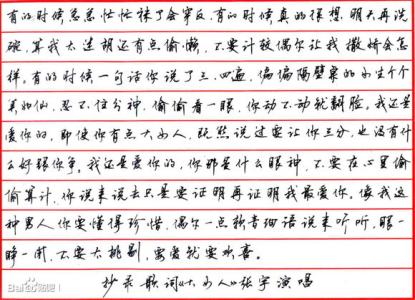 有的时候急急忙忙袜子会穿反.有的时候真的很想.明天再洗
碗.算我太迷糊还有点偷懒.不要计较偶尔让我撒娇会怎
样.有的时候一句话你说了三.四遍.偏偏隔壁桌的小生个个
美如仙.忍不住分神.偷偷看一眼.你动不动就翻脸.我还是
爱你的.即使你有点大小人.既然说过要让你三分.也没有什
么好跟你争.我还是爱你的.你那是什么眼神.不要在心里偷
偷算计.你说来说去只是要证明再证明我最爱你.像我这
种男人你要懂得珍惜.偶尔一点软音细语说来听听.眼一
睁一闭.不要太挑剔.要爱就要欢喜.
抄录歌词《大小人》张宇演唱
Bai 贴吧